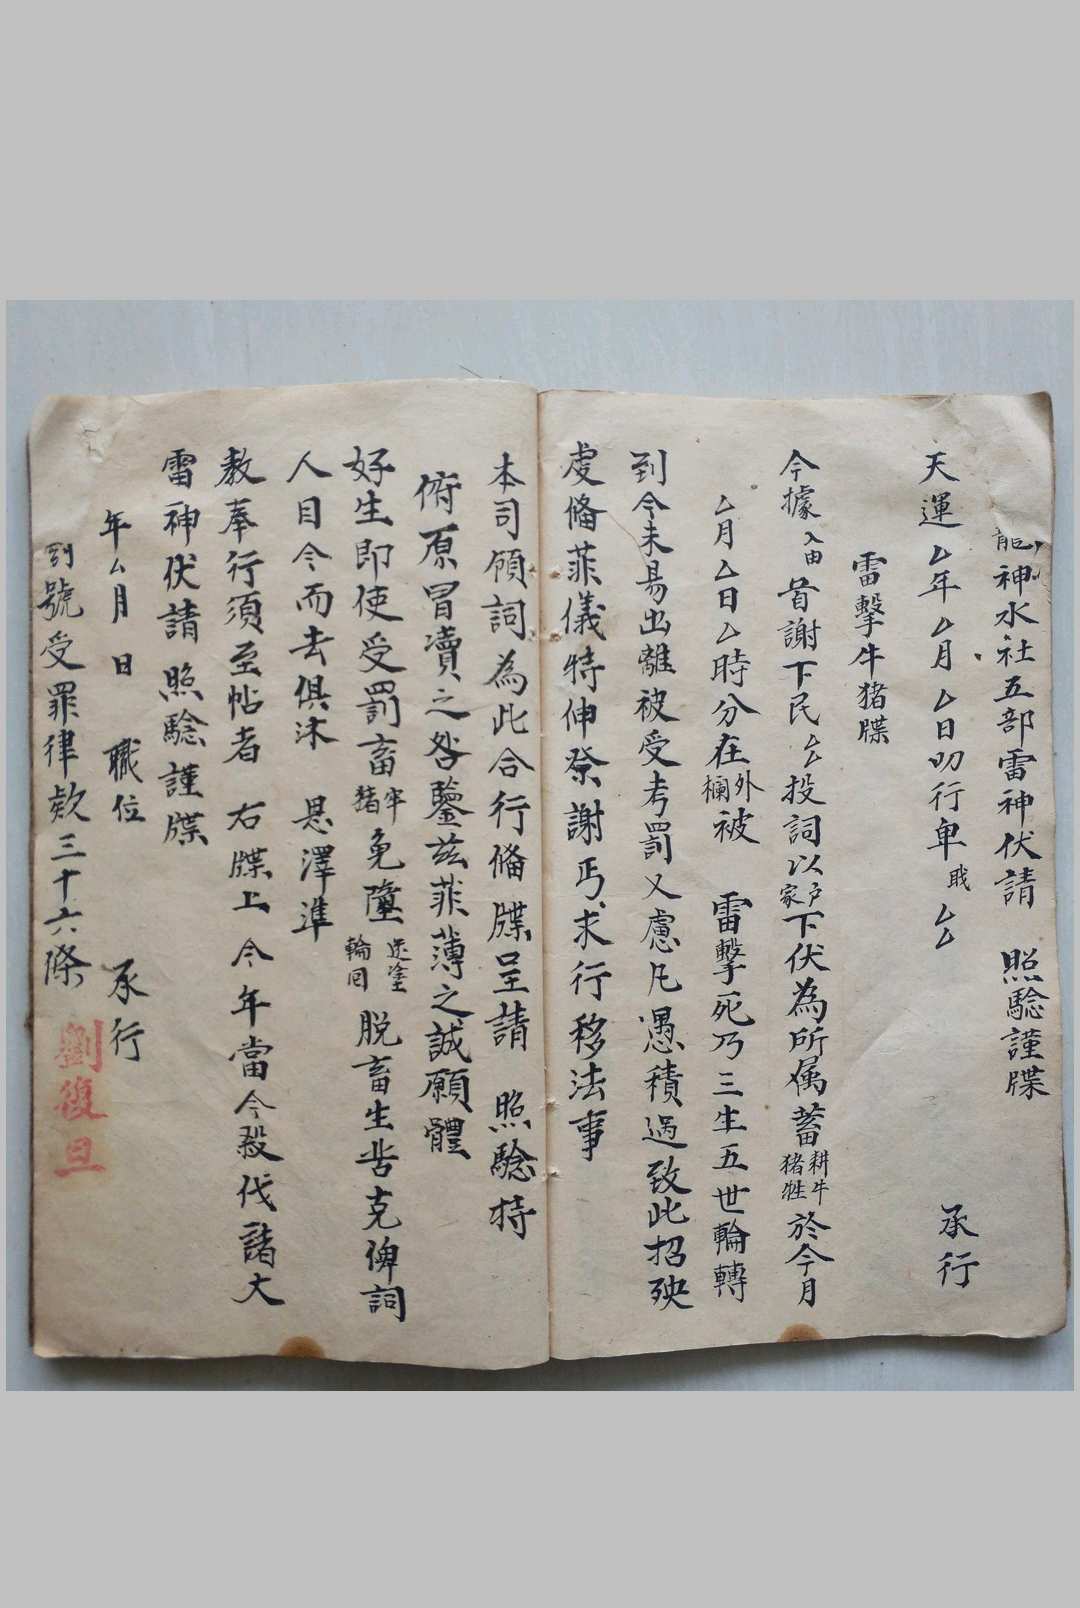 龍神水社五部雷神伏請 照驗謹牒
天運厶年厶月厶日叨行車戝厶 承行
雷擊牛猪牒
今據入由首謝下民厶投詞以户家下伏為所属蓄耕牛猪牲於今月
厶月厶日厶時分在外欄被 雷擊死乃三生五世輪轉
到今未易出離被受考罰又慮凡愚積過致此招殃
虔俻菲儀特伸祭謝丐求行移法事
本司領詞為此合行俻牒呈請 照驗特
俯原冒瀆之咎鑒兹菲薄之誠願體
好生即使受罰畜牢猪免墮迷塗輪回脱畜生苦克俾詞
人目今而去俱沐 恩澤準
教奉行須至帖者 右牒上 今年當令殺伐諸大
雷神伏請 照驗謹牒
年厶月 日 職位 承行
到號受罪律欵三十六條
劉復旦